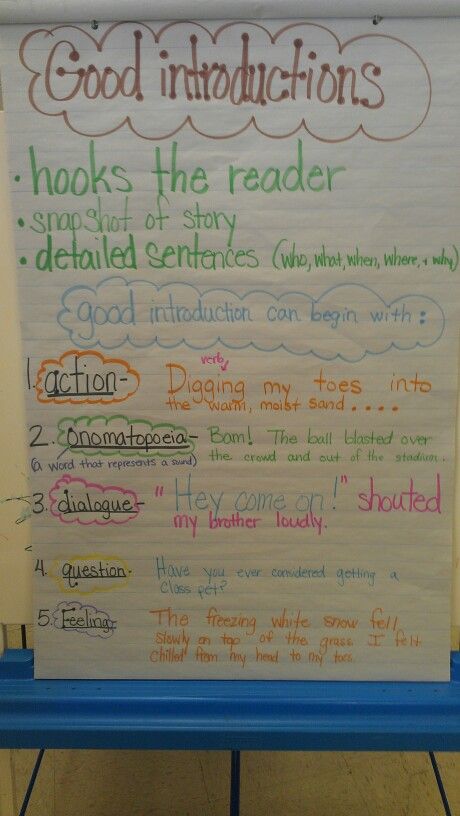 Good introductions
• hooks the reader
• snapshot of story
• detailed sentences (who, what, when, where, + why)
good introduction can begin with:
verb
1. action- Digging my toes into
the warm, moist sand....
2. Onomatopoeia- Bam! The ball blasted over
(a word that represents a sound) the crowd and out of the stadium.
3. dialogue- "Hey come on!" shouted
my brother loudly.
4. question- Have you ever considered getting a
class pet?
5. Feeling- The freezing white snow fell
slowly on top of the grass. I felt
chilled from my head to my toes.